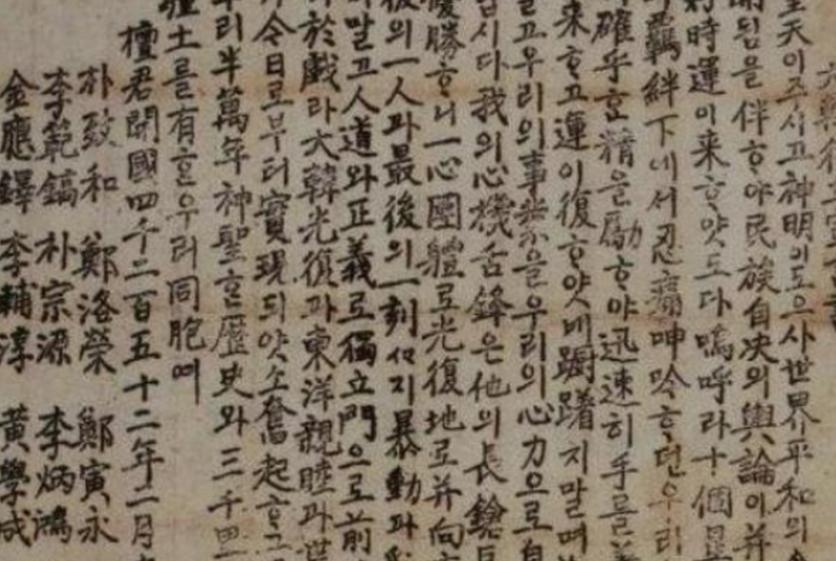 皇天이주시고神明이도으사世界平和의
됨을伴하야民族自決의輿論이並
時運이来하얏도다嗚呼라十個星
羈絆下에서忍痛呻吟하던우리
確乎한精을勵하야迅速히手를
来하고運이復하얏네躕躇지말며
고우리의事業을우리의心力으로自
십시다我의心機舌鋒은他의長鎗巨
優勝하니一心團體로光復地로并向
後의一人과最後의一刻까지暴動과
말고人道와正義로獨立門으로前
於戱라大韓光復과東洋親睦과世
今日로부터實現되얏소奮起하
리半萬年神聖한歷史와三千里
疆土를有한우리同胞여
檀君開國四千二百五十二年二月
朴致和 鄭洛榮 鄭寅永
李範鎬 朴宗源 李炳鴻
金應鐸 李輔淳 黃學成